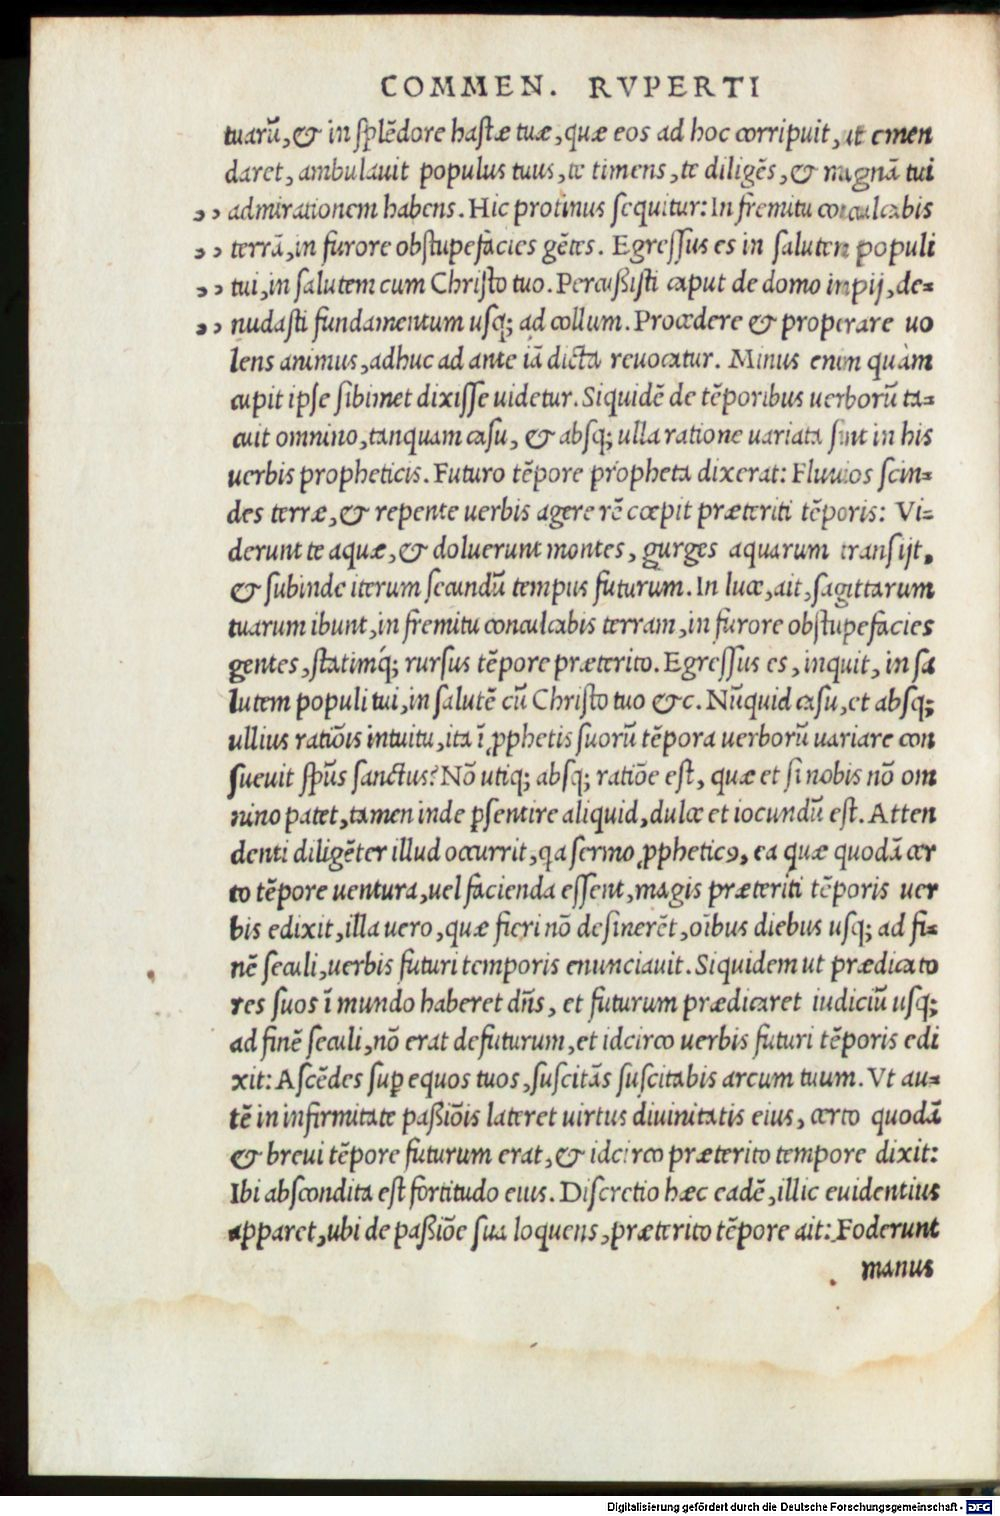 COMMEN. RVPERTI
tuarū, & in splēdore hastæ tuæ, quæ eos ad hoc corripuit, ut emen
daret, ambulauit populus tuus, te timens, te diligēs, & magnā tui
,, admirationem habens. Hic protinus sequitur: In fremitu conculcabis
,, terrā, in furore obstupefacies gētes. Egressus es in salutem populi
,, tui, in salutem cum Christo tuo. Percußisti caput de domo impij, de=
,, nudasti fundamentum usq; ad collum. Procedere & properare uo
lens animus, adhuc ad ante iā dicta reuocatur. Minus enim quàm
cupit ipse sibimet dixisse uidetur. Siquidē de tēporibus uerborū ta=
cuit omnino, tanquam casu, & absq; ulla ratione uariata sint in his
uerbis propheticis. Futuro tēpore propheta dixerat: Fluuios scin=
des terræ, & repente uerbis agere rē cœpit præteriti tēporis: Vi=
derunt te aquæ, & doluerunt montes, gurges aquarum transijt,
& subinde iterum secundū tempus futurum. In luce, ait, sagittarum
tuarum ibunt, in fremitu conculcabis terram, in furore obstupefacies
gentes, statimq́; rursus tēpore præterito. Egressus es, inquit, in sa
lutem populi tui, in salutē cū Christo tuo &c. Nūquid casu, et absq;
ullius ratiōis intuitu, ita ī ꝓphetis suorū tēpora uerborū uariare con
sueuit spūs sanctus? Nō utiq; absq; ratiōe est, quæ et si nobis nō om
nino patet, tamen inde p̱sentire aliquid, dulce et iocundū est. Atten
denti diligēter illud occurrit, qa sermo ꝓpheticꝰ, ea quæ quodā cer
to tēpore uentura, uel facienda essent, magis præteriti tēporis uer
bis edixit, illa uero, quæ fieri nō desinerēt, oībus diebus usq; ad fi=
nē seculi, uerbis futuri temporis enunciauit. Siquidem ut prædicato
res suos ī mundo haberet dn̄s, et futurum prædicaret iudiciū usq;
ad finē seculi, nō erat defuturum, et idcirco uerbis futuri tēporis edi
xit: Ascēdes suꝑ equos tuos, suscitās suscitabis arcum tuum. Vt au=
tē in infirmitate paßiōis lateret uirtus diuinitatis eius, certo quodā
& breui tēpore futurum erat, & idcirco præterito tempore dixit:
Ibi abscondita est fortitudo eius. Discretio hæc eadē, illic euidentius
apparet, ubi de paßiōe sua loquens, præterito tēpore ait: Foderunt
manus
Digitalisierung gefördert durch die Deutsche Forschungsgemeinschaft - DFG